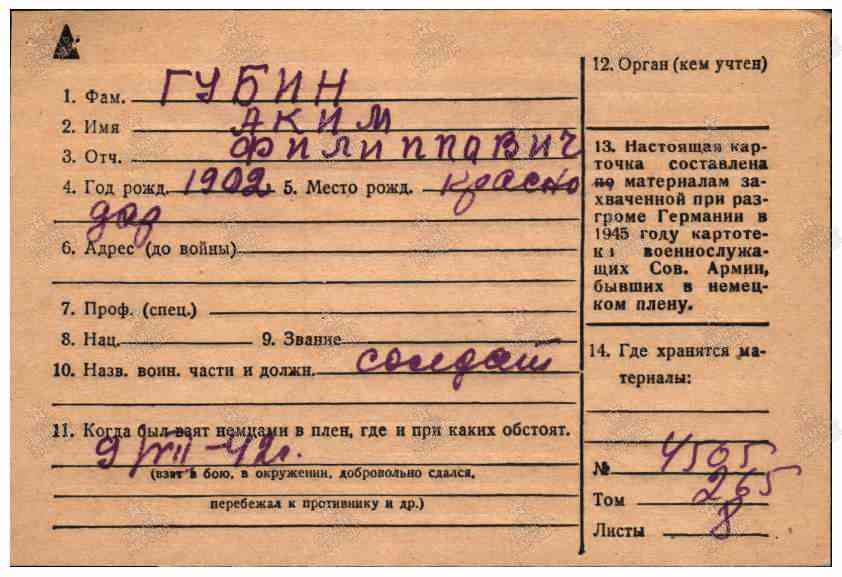 1. Фам. ГУБИН
2. Имя АКИМ
3. Отч. ФИЛИППАВИЧ
4. Год рожд. 1902 5. Место рожд. Красно
дар
6. Адрес (до войны)
7. Проф. (спец.)
8. Нац. 9. Звание
10. Назв. воин. части и должн. солдат
11. Когда был взят немцами в плен, где и при каких обстоят.
9/VII-42г.
(взят в бою, в окружении, добровольно сдался,
перебежал к противнику и др.)
12. Орган (кем учтен)
13. Настоящая кар-
точка составлена
по материалам за-
хваченной при раз-
громе Германии в
1945 году картоте-
ки военнослужа-
щих Сов. Армии,
бывших в немец-
ком плену.
14. Где хранятся ма-
териалы:
№ 4505
Том 265
Листы 8